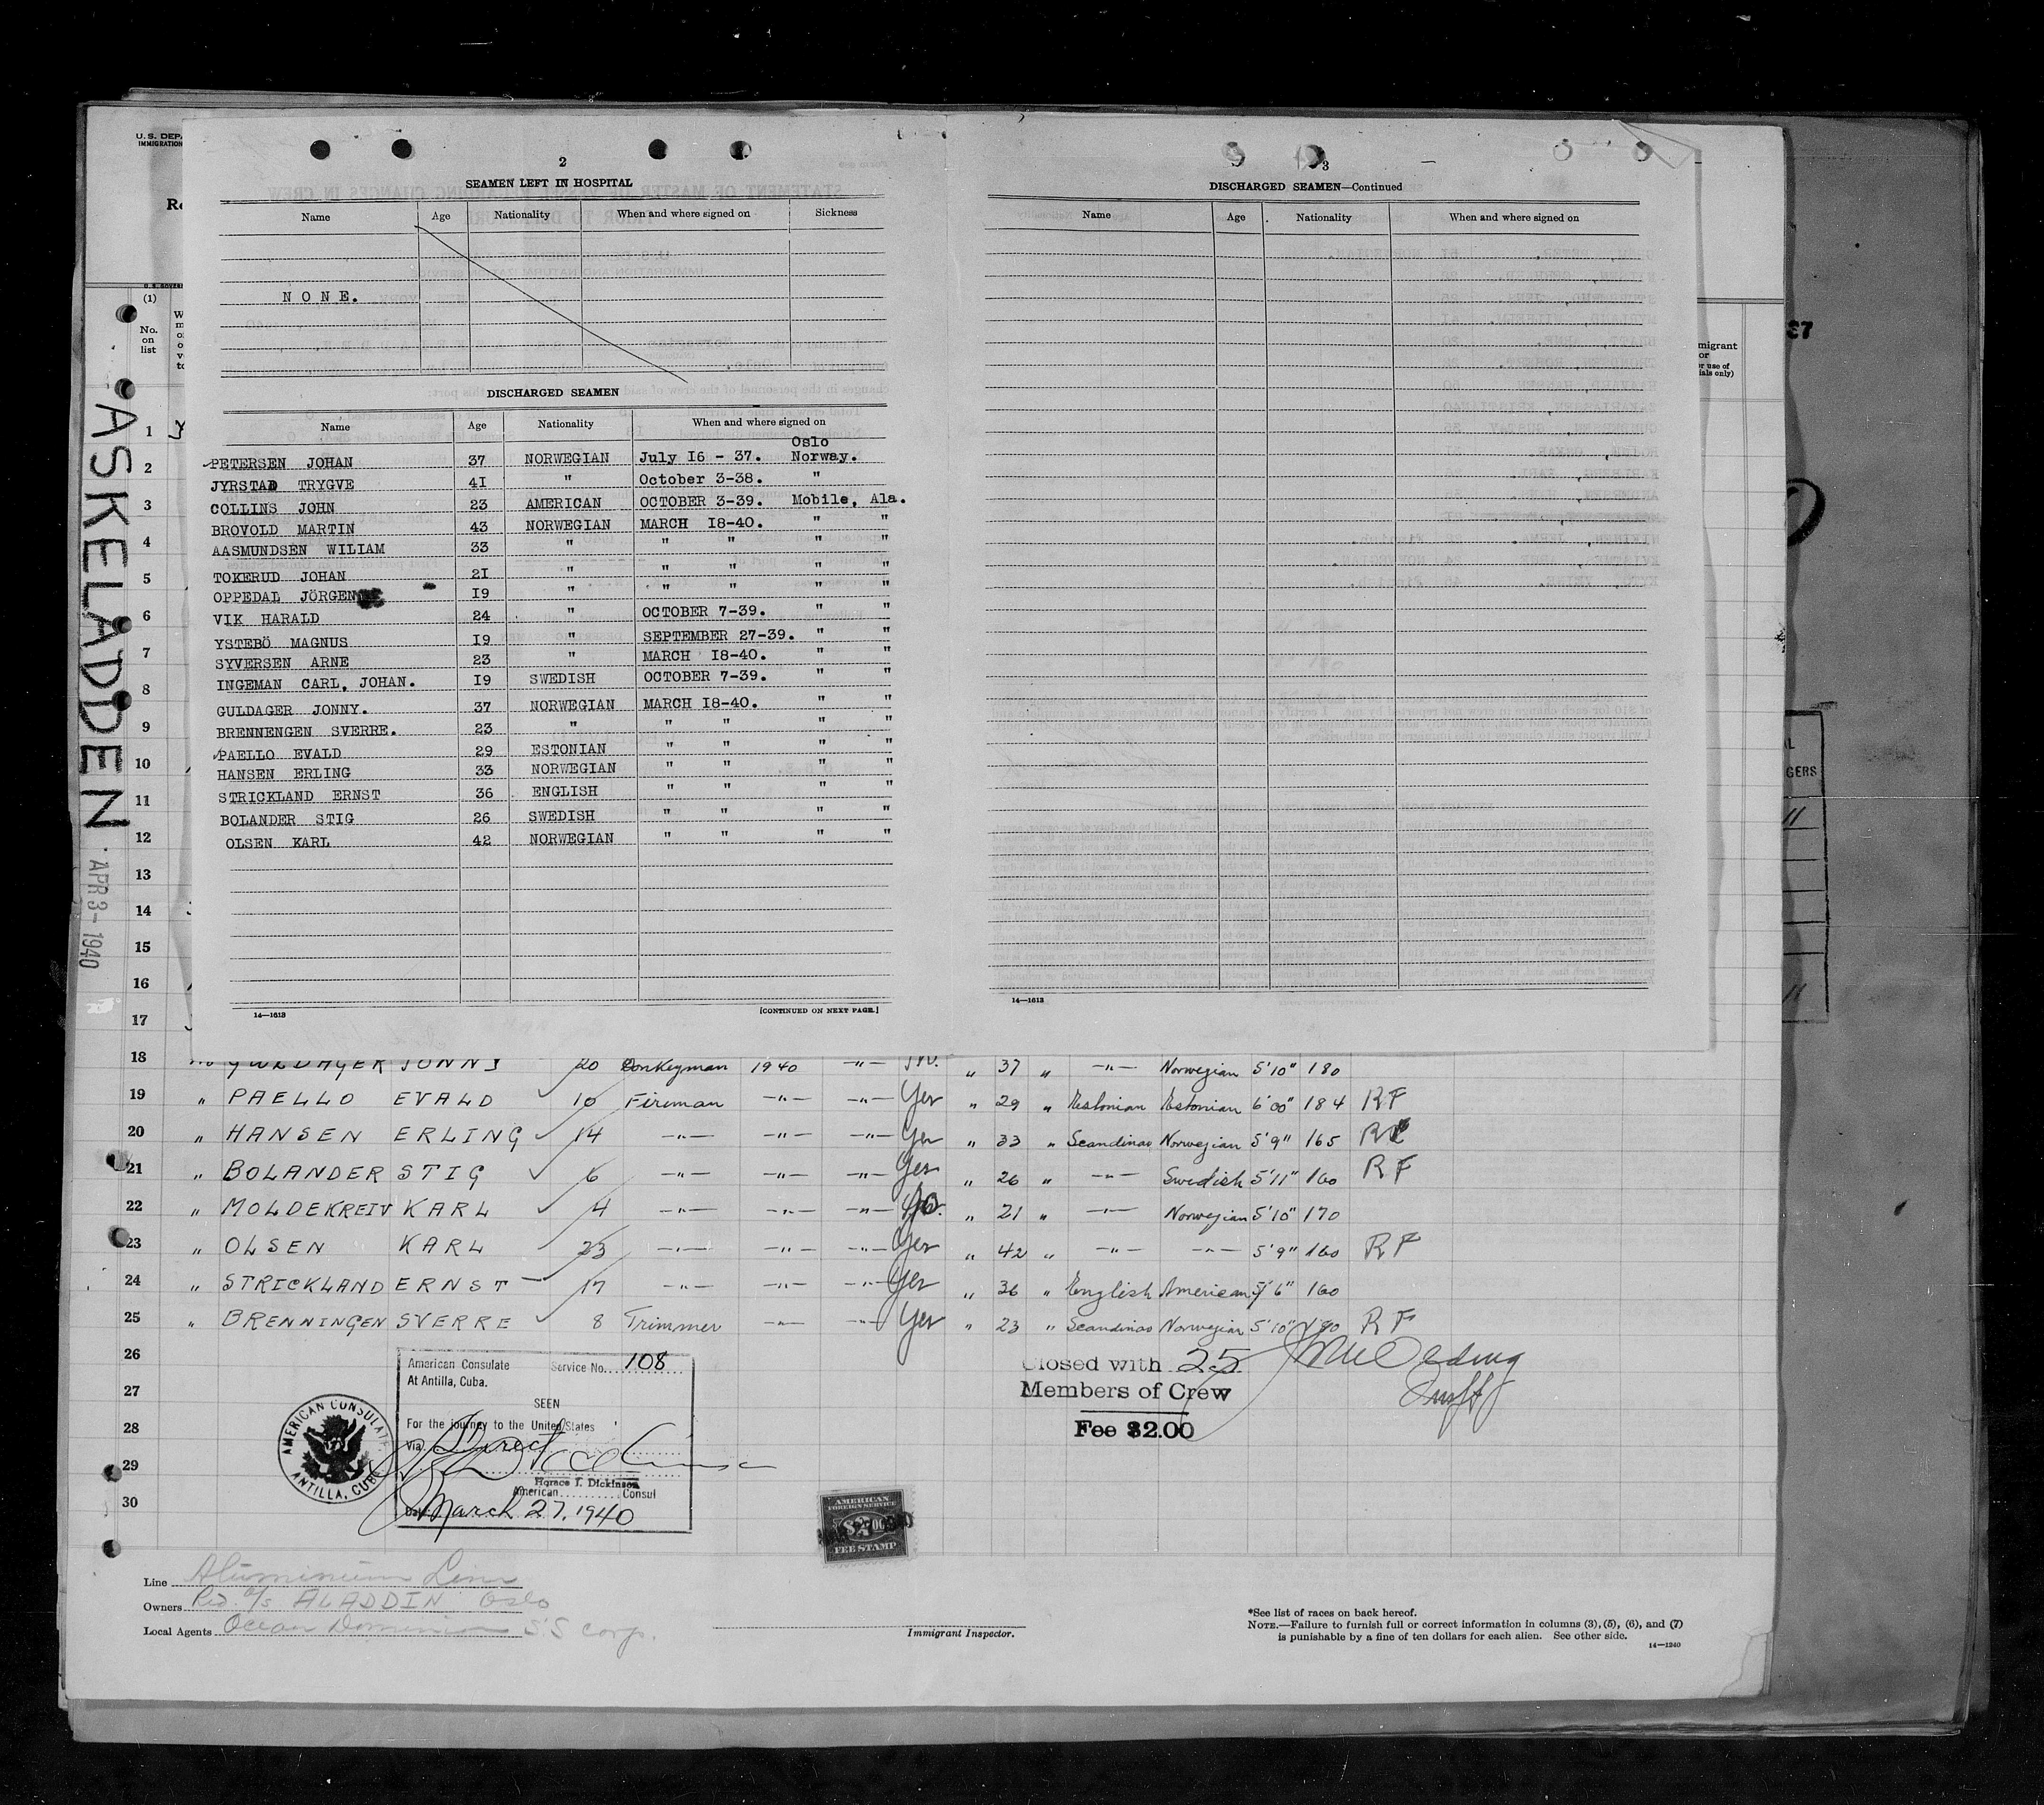 U.S. DEP
IMMIGRATION
2
SEAMEN LEFT IN HOSPITAL
Name Age Nationality When and where signed on Sickness
NONE.
DISCHARGED SEAMEN
Name Age Nationality When and where signed on
PETERSEN JOHAN 37 NORWEGIAN July I6 - 37. Oslo Norway.
JYRSTAD TRYGVE 4I " October 3-38. "
COLLINS JOHN 23 AMERICAN OCTOBER 3-39. Mobile, Ala.
BROVOLD MARTIN 43 NORWEGIAN MARCH I8-40. " "
AASMUNDSEN WILIAM 33 " " " " "
TOKERUD JOHAN 2I " " " " "
OPPEDAL JÖRGEN I9 " " " " "
VIK HARALD 24 " OCTOBER 7-39. " "
YSTEBÖ MAGNUS I9 " SEPTEMBER 27-39. " "
SYVERSEN ARNE 23 " MARCH I8-40. " "
INGEMAN CARL, JOHAN. I9 SWEDISH OCTOBER 7-39. " "
GULDAGER JONNY. 37 NORWEGIAN MARCH I8-40. " "
BRENNENGEN SVERRE. 23 " " " " "
PAELLO EVALD 29 ESTONIAN " " " "
HANSEN ERLING 33 NORWEGIAN " " " "
STRICKLAND ERNST 36 ENGLISH " " " "
BOLANDER STIG 26 SWEDISH " " " "
OLSEN KARL 42 NORWEGIAN " " " "
14—1613
[CONTINUED ON NEXT PAGE.]
3
DISCHARGED SEAMEN—Continued
Name Age Nationality When and where signed on
14—1613
(1)
No.
on
list
ASKELADDEN
APR 3- 1940
1
2
3
4
5
6
7
8
9
10
11
12
13
14
15
16
17
18 GULDAGER JONNY 20 Donkeyman 1940 —"— " 37 " —"— Norwegian 5'10" 180
19 " PAELLO EVALD 10 Fireman —"— —"— Yes " 29 " Estonian Estonian 6'00" 184 RF
20 " HANSEN ERLING 14 —"— —"— —"— Yes " 33 " Scandinav Norwegian 5'9" 165
21 " BOLANDER STIG 6 —"— —"— —"— Yes " 26 " —"— Swedish 5'11" 160 RF
22 " MOLDEKREIV KARL 4 —"— —"— —"— " 21 " —"— Norwegian 5'10" 170
23 " OLSEN KARL 23 —"— —"— —"— Yes " 42 " —"— —"— 5'9" 160 RF
24 " STRICKLAND ERNST 17 —"— —"— —"— Yes " 36 " English American 5'6" 160
25 " BRENNINGEN SVERRE 8 Trimmer —"— —"— Yes " 23 " Scandinav Norwegian 5'10" RF
26
27
28
29
30
American Consulate Service No. 108
At Antilla, Cuba.
SEEN
For the journey to the United States
Via Direct
Horace J. Dickinson
American Consul
Date March 27, 1940
AMERICAN CONSULATE
ANTILLA, CUBA
Closed with 25
Members of Crew
Fee $2.00
AMERICAN
FOREIGN SERVICE
$2.00
FEE STAMP
Line Aluminium Line
Owners Red. A/S ALADDIN Oslo
Local Agents Ocean Dominion S.S corp.
Immigrant Inspector.
*See list of races on back hereof.
NOTE.—Failure to furnish full or correct information in columns (3), (5), (6), and (7)
is punishable by a fine of ten dollars for each alien. See other side.
14—1240